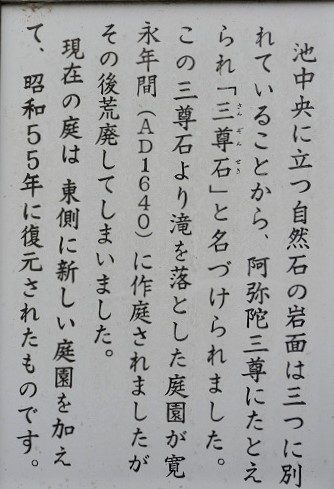 池中央に立つ自然石の岩面は三つに別
れていることから、阿弥陀三尊にたとえ
られ「三尊石」と名づけられました。
さんぞんせき
この三尊石より滝を落とした庭園が寛
永年間（AD1640）に作庭されましたが
その後荒廃してしまいました。
現在の庭は 東側に新しい庭園を加え
て、昭和55年に復元されたものです。